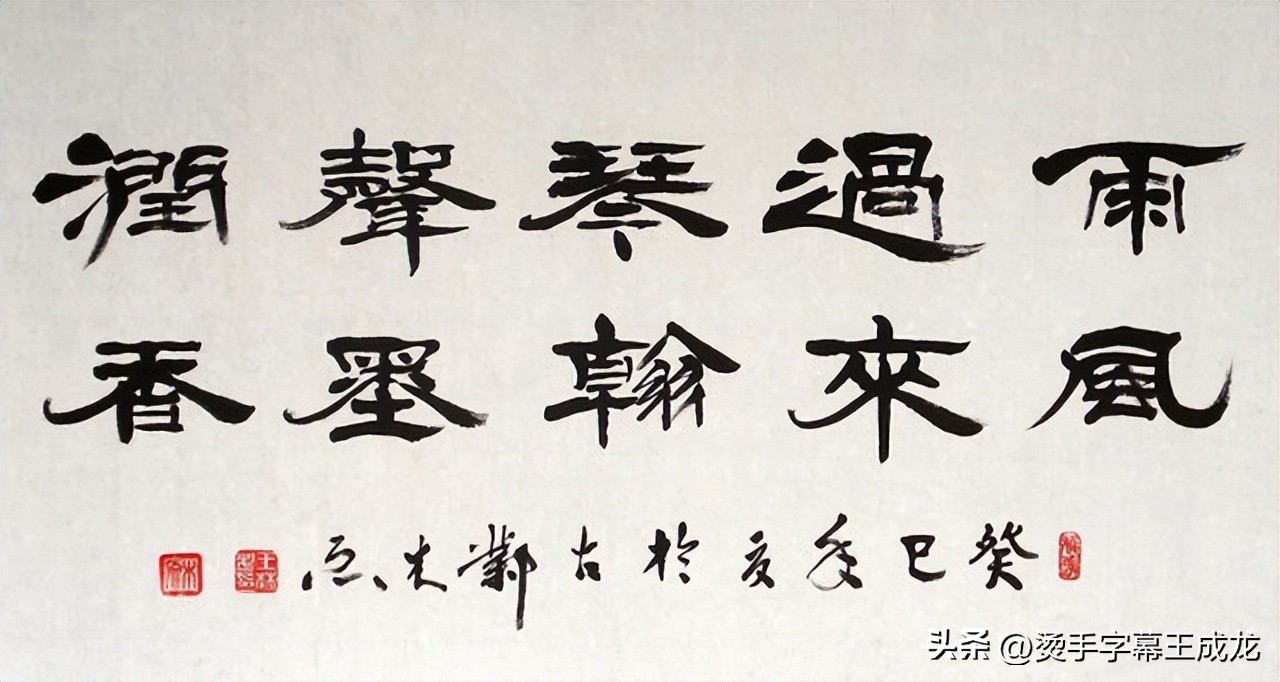 雨過琴聲潤
風來翰墨香
癸巳季夏於古鄴
头条 @烫手字幕王成龙